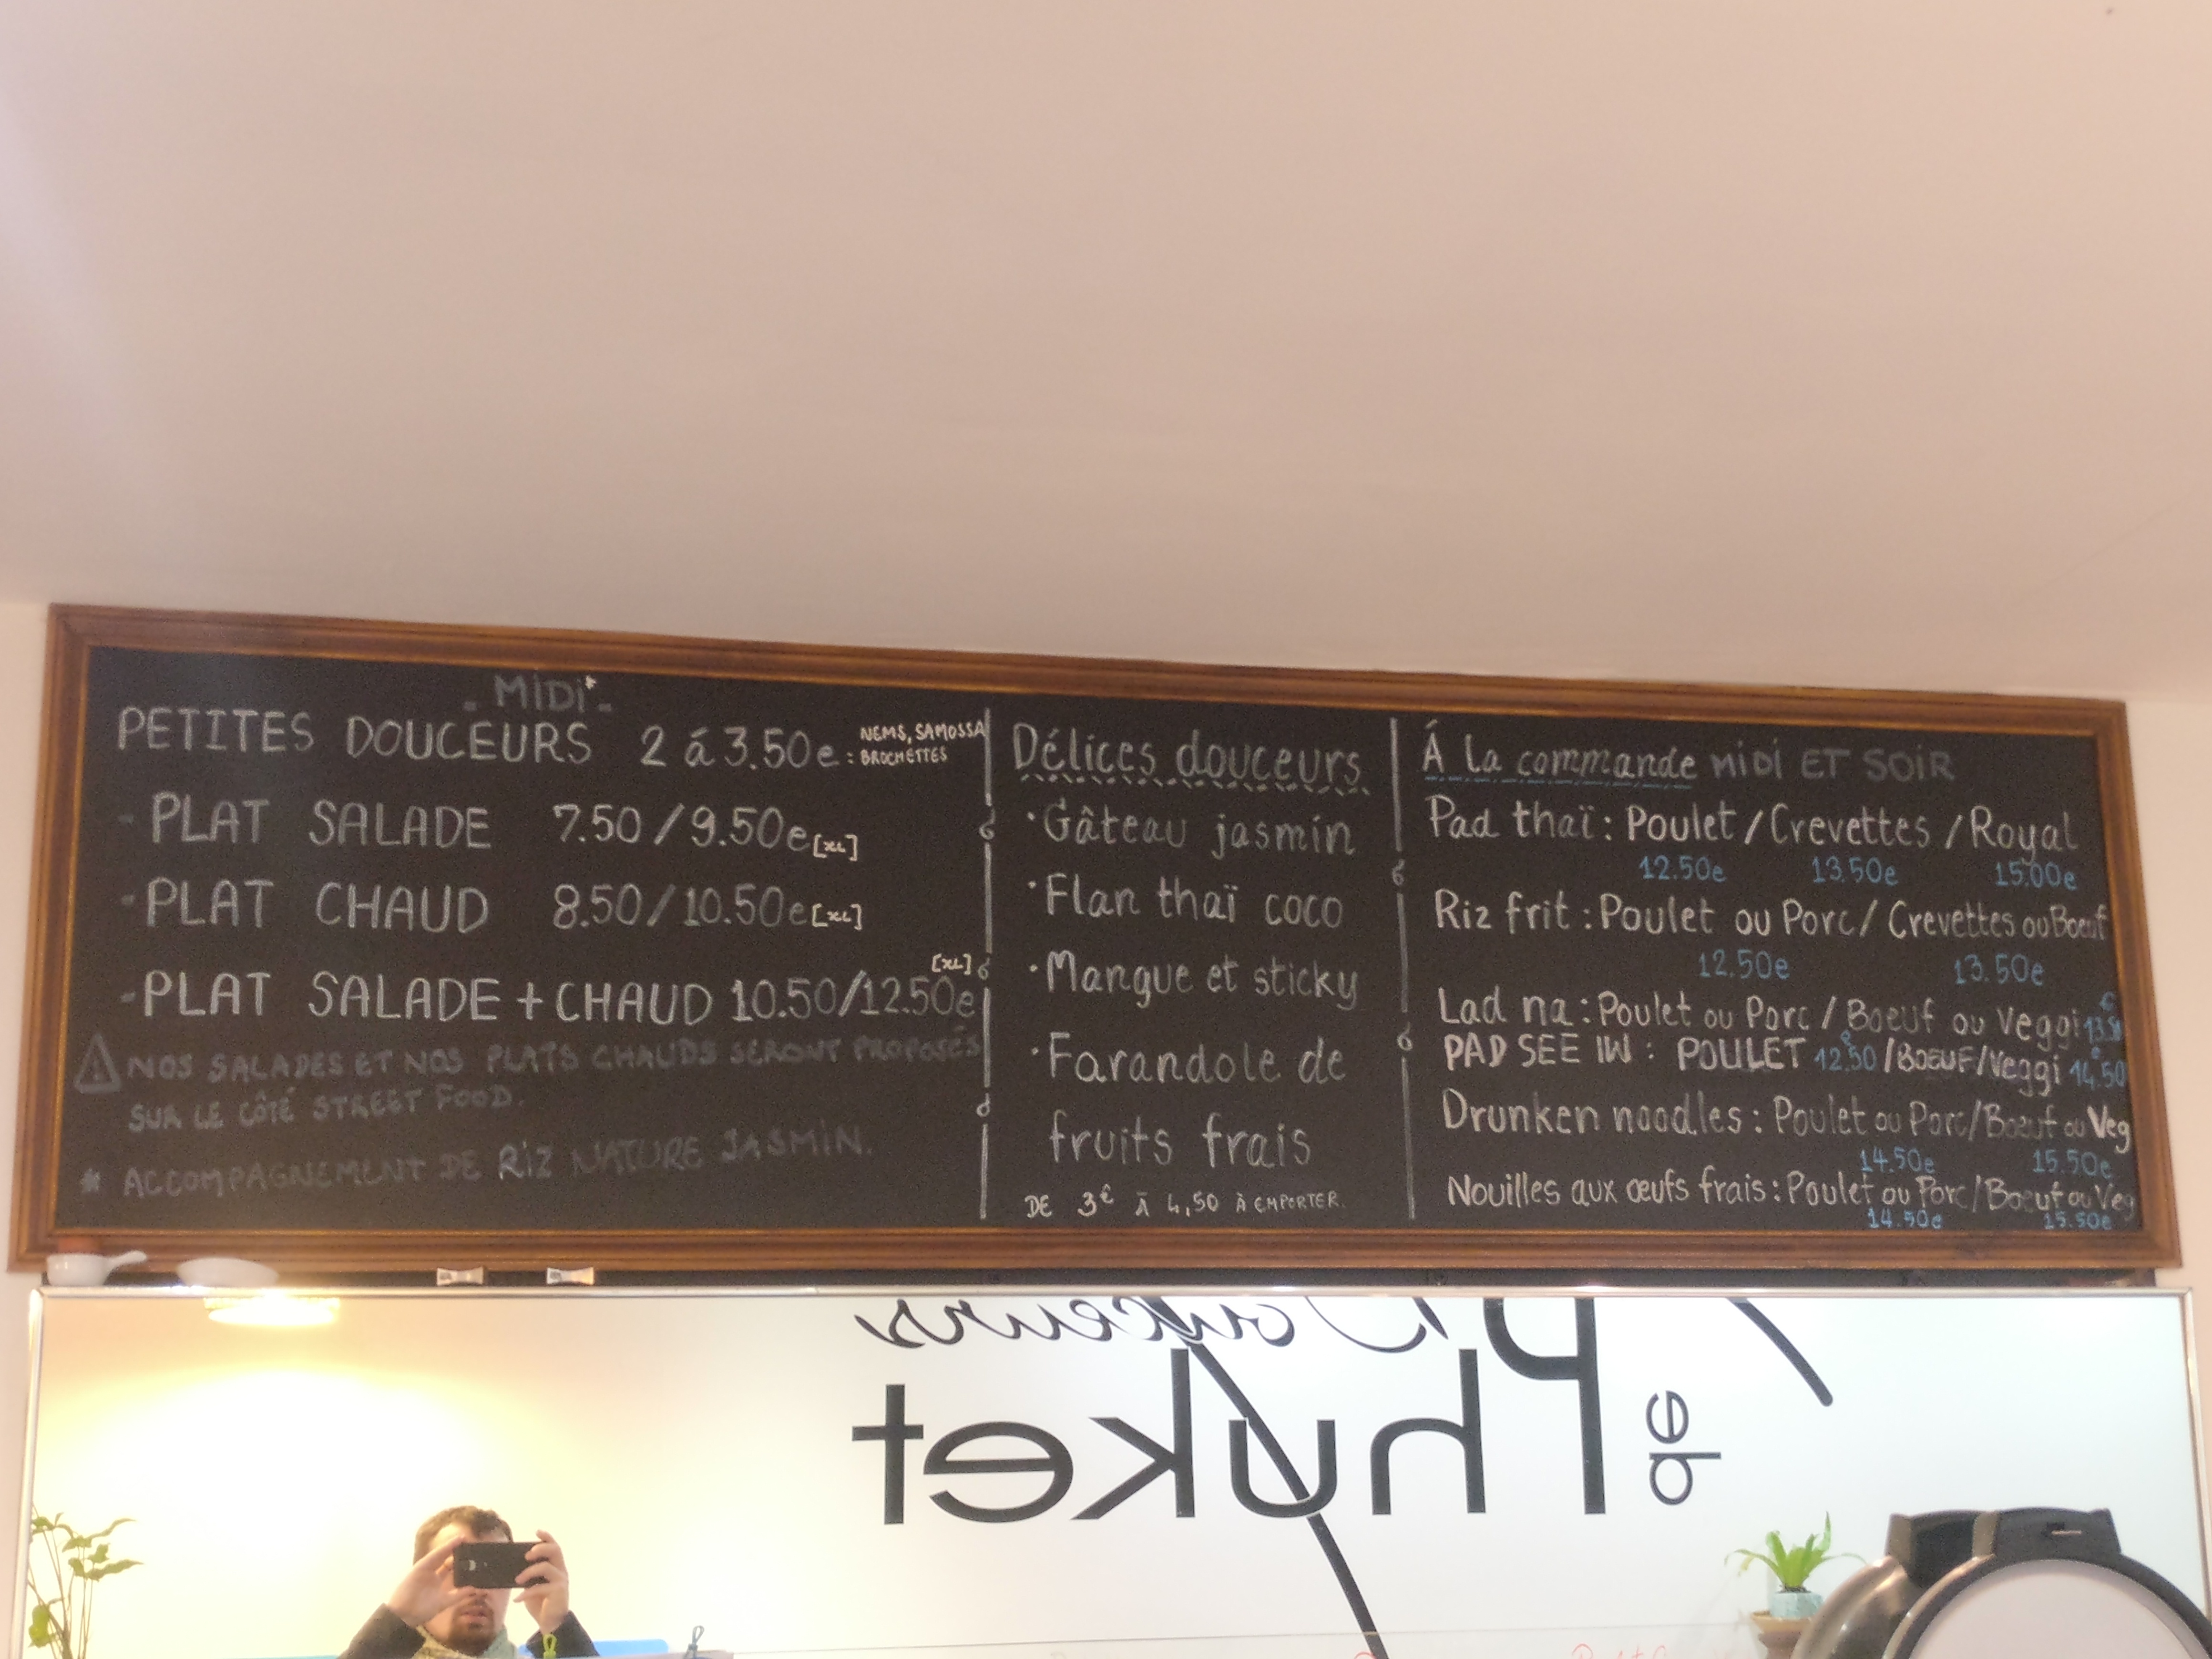 - MIDI* -
PETITES DOUCEURS 2 á 3.50e : NEMS, SAMOSSA
BROCHETTES
- PLAT SALADE 7.50 / 9.50e [XL]
- PLAT CHAUD 8.50 / 10.50e [XL]
- PLAT SALADE + CHAUD 10.50/12.50e [XL]
⚠ NOS SALADES ET NOS PLATS CHAUDS SERONT PROPOSÉS
SUR LE CÔTÉ STREET FOOD.
* ACCOMPAGNEMENT DE RIZ NATURE JASMIN.
Délices douceurs
· Gâteau jasmin
· Flan thaï coco
· Mangue et sticky
· Farandole de
fruits frais
DE 3€ À 4,50 À EMPORTER.
Á La commande MIDI ET SOIR
Pad thaï : Poulet / Crevettes / Royal
12.50e 13.50e 15.00e
Riz frit : Poulet ou Porc / Crevettes ou Boeuf
12.50e 13.50e
Lad na : Poulet ou Porc / Boeuf ou Veggi 13.50
PAD SEE IW : POULET 12.50 / BOEUF/Veggi 14.50
Drunken noodles : Poulet ou Porc/Boeuf ou Veg
14.50e 15.50e
Nouilles aux œufs frais : Poulet ou Porc/Boeuf ou Veg
14.50e 15.50e
Douceurs
de Phuket